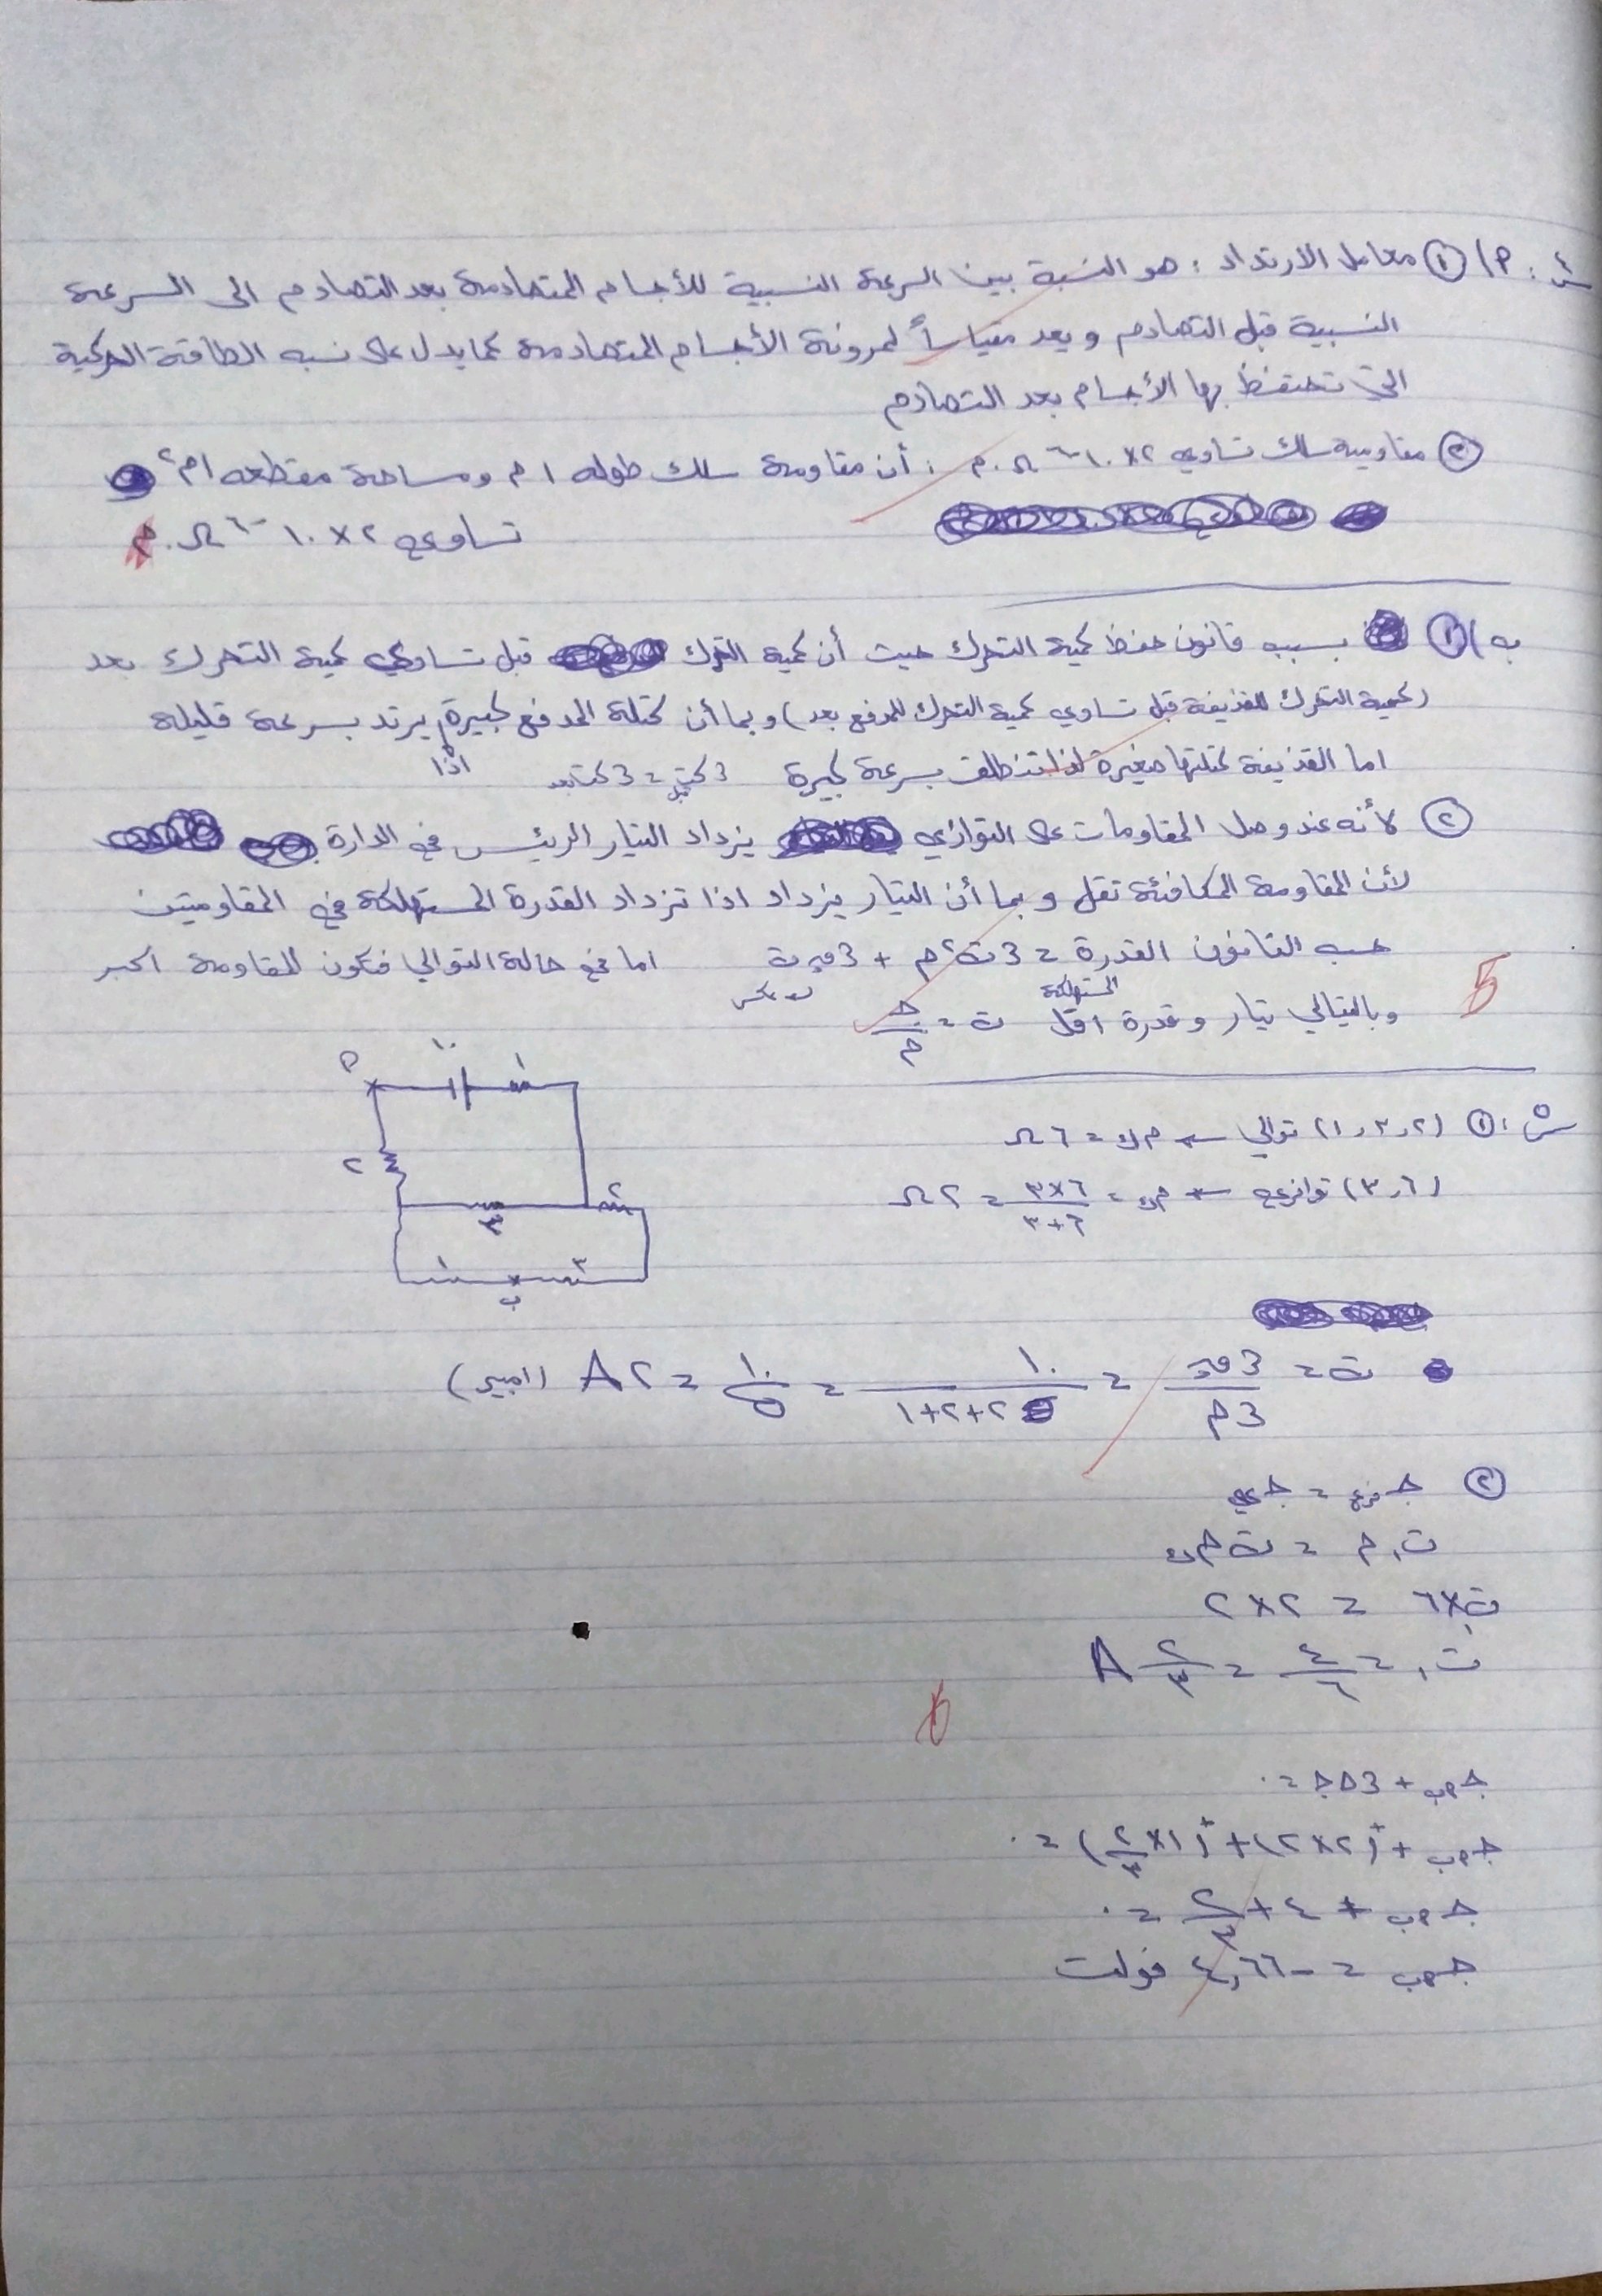 س٤: أ) ① معامل الارتداد : هو النسبة بين السرعة النسبية للأجسام المتصادمة بعد التصادم الى السرعة
النسبية قبل التصادم ويعد مقياساً لمرونة الأجسام المتصادمة كما يدل على نسبه الطاقة الحركية
التي تحتفظ بها الأجسام بعد التصادم
② مقاومية سلك تساوي ٢×١٠⁻⁶ Ω.م : أن مقاومة سلك طوله ١م ومساحة مقطعه ١م²
تساوي ٢×١٠⁻⁶ Ω.م
ب) ① بسبب قانون حفظ كمية التحرك حيث أن كمية التحرك قبل تساوي كمية التحرك بعد
(كمية التحرك للقذيفة قبل تساوي كمية التحرك للمدفع بعد) وبما أن كتلة المدفع كبيرة اذا يرتد بسرعة قليلة
اما القذيفة كتلتها صغيرة لذا تنطلق بسرعة كبيرة
② لأنه عند وصل المقاومات على التوازي يزداد التيار الرئيس في الدارة
لأن المقاومة المكافئة تقل وبما أن التيار يزداد اذا تزداد القدرة المستهلكة في المقاومتين
حسب القانون القدرة المستهلكة = Σت²م + Σقَ ت اما في حالة التوالي فتكون المقاومة اكبر
وبالتالي تيار وقدرة اقل ت = جـ/م
5
أ ١٠ ١
٢
٣ ٢
١ ب ٣
س٥: ① (٢,٣,١) توالي ← م ك = ٦Ω
(٣,٦) توازي ← م ك = ٣×٦/٣+٦ = ٢Ω
ت = Σقد/Σم = ١٠/١+٢+٢ = ١٠/٥ = ٢ A (امبير)
② جـ فرع = جـ كلي
ت١ م = ت م ك
ت١×٦ = ٢×٢
ت١ = ٤/٦ = ٢/٣ A
6
جـ أب + ΣΔجـ = ٠
جـ أب + (٢×٢) + (١×٢/٣) = ٠
جـ أب + ٤ + ٢/٣ = ٠
جـ أب = -٤,٦٦ فولت